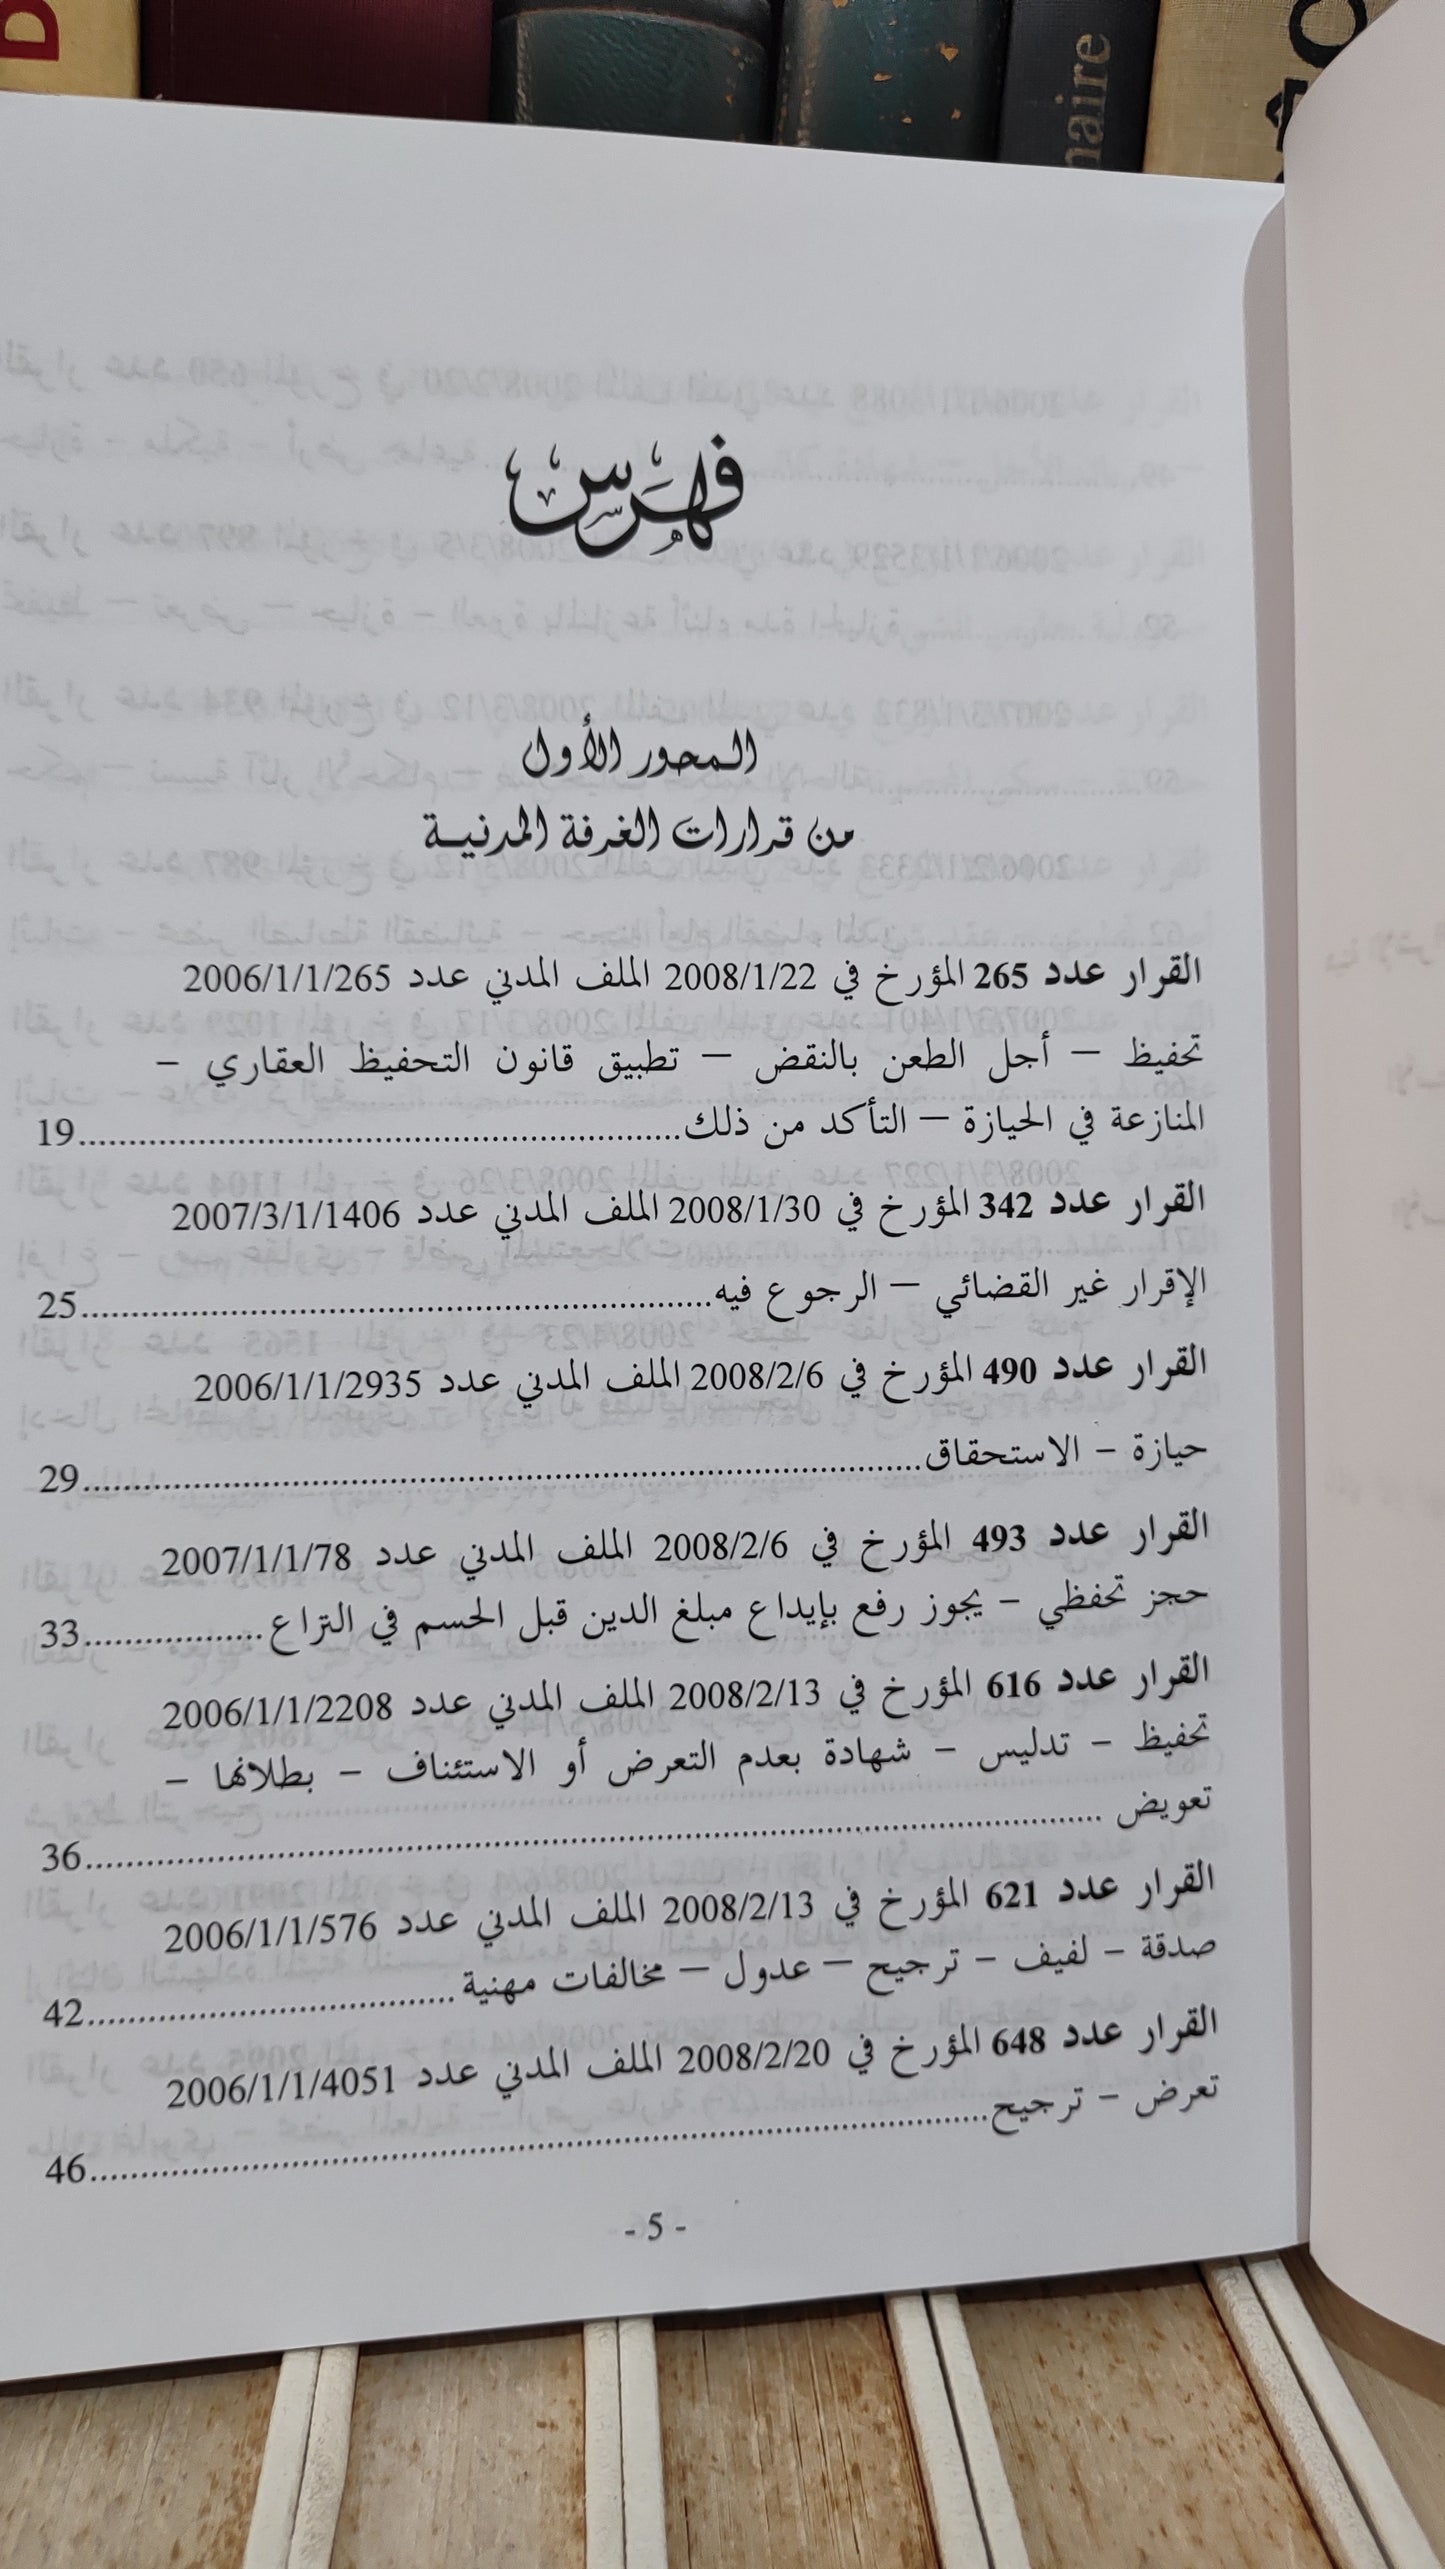 D
naire
فهرس
المحور الأول
من قرارات الغرفة المدنية
القرار عدد 265 المؤرخ في 2008/1/22 الملف المدني عدد 2006/1/1/265
تحفيظ – أجل الطعن بالنقض – تطبيق قانون التحفيظ العقاري –
المنازعة في الحيازة – التأكد من ذلك......19
القرار عدد 342 المؤرخ في 2008/1/30 الملف المدني عدد 2007/3/1/1406
الإقرار غير القضائي – الرجوع فيه......25
القرار عدد 490 المؤرخ في 2008/2/6 الملف المدني عدد 2006/1/1/2935
حيازة – الاستحقاق......29
القرار عدد 493 المؤرخ في 2008/2/6 الملف المدني عدد 2007/1/1/78
حجز تحفظي – يجوز رفع بإيداع مبلغ الدين قبل الحسم في النزاع......33
القرار عدد 616 المؤرخ في 2008/2/13 الملف المدني عدد 2006/1/1/2208
تحفيظ – تدليس – شهادة بعدم التعرض أو الاستئناف – بطلانها –
تعويض ......36
القرار عدد 621 المؤرخ في 2008/2/13 الملف المدني عدد 2006/1/1/576
صدقة – لفيف – ترجيح – عدول – مخالفات مهنية......42
القرار عدد 648 المؤرخ في 2008/2/20 الملف المدني عدد 2006/1/1/4051
تعرض – ترجيح......46
- 5 -